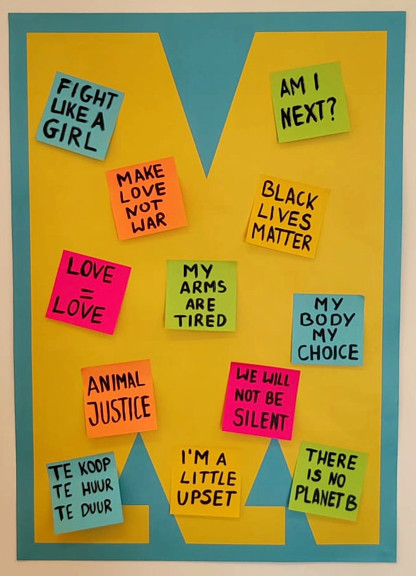 FIGHT
LIKE A
GIRL
AM I
NEXT?
MAKE
LOVE
NOT
WAR
BLACK
LIVES
MATTER
LOVE
=
LOVE
MY
ARMS
ARE
TIRED
MY
BODY
MY
CHOICE
ANIMAL
JUSTICE
WE WILL
NOT BE
SILENT
TE KOOP
TE HUUR
TE DUUR
I'M A
LITTLE
UPSET
THERE
IS NO
PLANET B